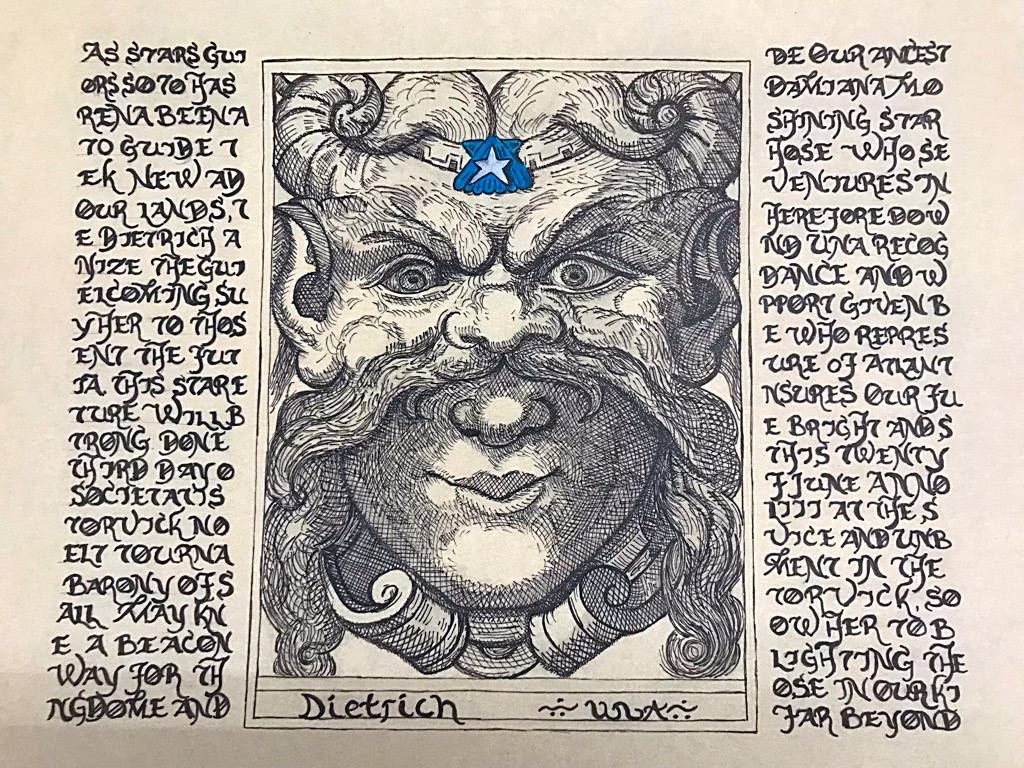 AS STARS GUI DE OUR ANCEST
ORS SO TO HAS DAMIANA MO
RENA BEEN A SHINING STAR
TO GUIDE T HOSE WHO SE
EK NEW AD VENTURES IN
OUR LANDS, T HEREFORE DO W
E DIETRICH A ND UNA RECOG
NIZE THE GUI DANCE AND W
ELCOMING SU PPORT GIVEN B
Y HER TO THOS E WHO REPRES
ENT THE FUT URE OF ATLANT
IA. THIS STAR E NSURES OUR FU
TURE WILL B E BRIGHT AND S
TRONG DONE THIS TWENTY
THIRD DAY O F JUNE ANNO
SOCIETATIS LIII AT THE S
TORVICK NO VICE AND UNB
ELT TOURNA MENT IN THE
BARONY OF S TORVICK. SO
ALL MAY KN OW HER TO B
E A BEACON LIGHTING THE
WAY FOR TH OSE IN OUR KI
NGDOME AND FAR BEYOND
Dietrich UNA